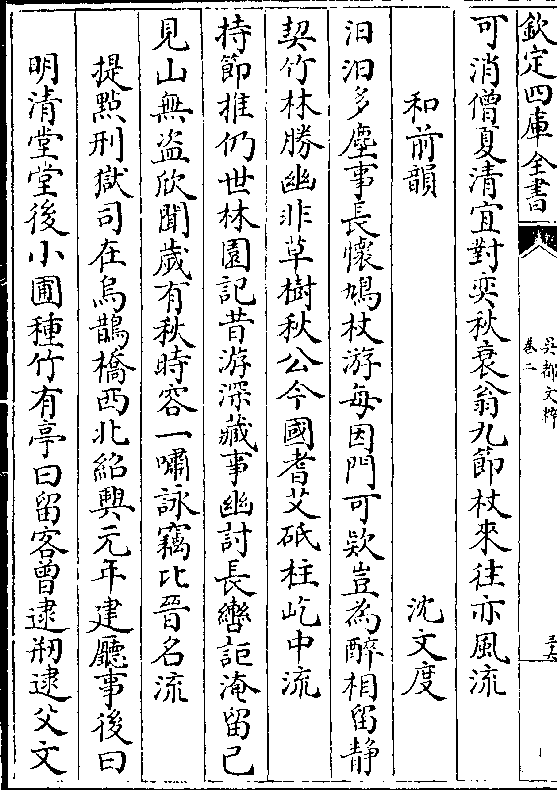 欽定四庫全書
吳都文粹
卷二
三十六
可消僧夏清宜對奕秋衰翁九節杖來往亦風流
和前韻
沈文度
汩汩多塵事長懷鳩杖游每因門可欵豈為醉相留静
契竹林勝幽非草樹秋公今國耆艾砥柱屹中流
持節推仍世林園記昔游深藏事幽討長轡詎淹留已
見山無盗欣聞歲有秋時容一嘯詠竊比晉名流
提㸃刑獄司在烏鵲橋西北紹興元年建廳事後曰
明清堂堂後小圃種竹有亭曰留客曾逮剏逮父文